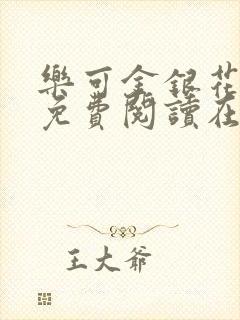 樂可金銀花
免費閱讀在
王大爺